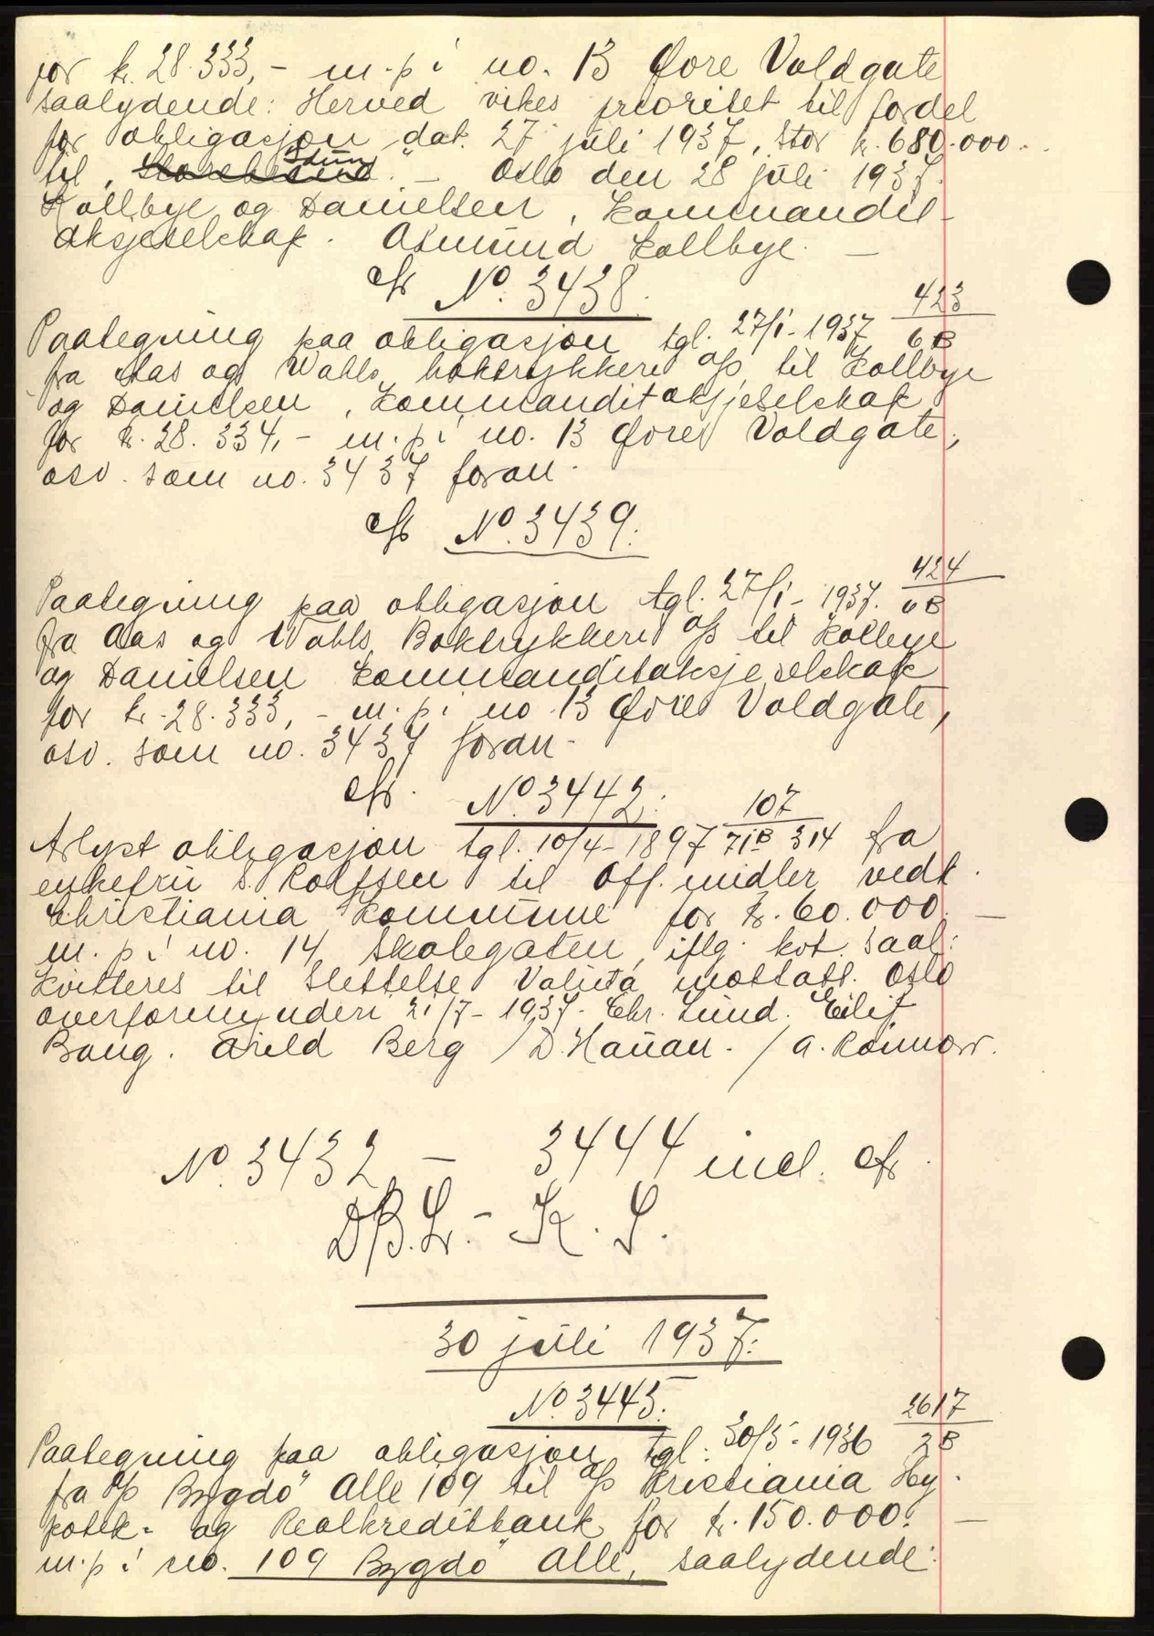 for kr. 28.333,- m.p i no. 13 Øvre Voldgate
saalydende: Herved vikes prioritet til fordel
for obligasjon dat. 27 juli 1937, stor kr. 680.000.
til " - Oslo den 28 juli 1937.
Kollbye og Danielsen, Kommandit-
aksjeselskap. Asmund Kollbye. -
No. 3438.
Paategning paa obligasjon tgl. 27/1-1937 423/6B
fra Aas og Wahls boktrykkeri A/S til Kollbye
og Danielsen, Kommanditaksjeselskap
for kr. 28.334,- m.p i no. 13 Øvre Voldgate,
osv. som no. 3437 foran.
No. 3439.
Paategning paa obligasjon tgl. 27/1-1937. 424/6B
fra Aas og Wahls Boktrykkeri A/S til Kollbye
og Danielsen Kommanditaksjeselskap
for kr. 28.333,- m.p i no. 13 Øvre Voldgate,
osv. som no. 3437 foran.
No. 3442.
Avlyst obligasjon tgl. 10/4-1897 107/71B 314 fra
enkefru S. Rolfsen til Off. midler vedk.
Christiania Kommune for kr. 60.000. -
m.p i no. 14 Skolegaten, iflg. kvt. saal:
Kvitteres til slettelse Valuta mottatt. Oslo
overformynderi 21/7-1937. Chr. Lund. Eilif
Bang. Arild Berg / D. Hauan. /
No. 3432 - 3444 incl.
30 juli 1937.
No. 3445.
Paategning paa obligasjon tgl. 30/5-1936 2617/2B
fra A/S Bygdö Alle 109 til A/S Kristiania Hy-
potek- og Realkreditbank for kr. 150.000. -
m.p i no. 109 Bygdö Alle, saalydende: